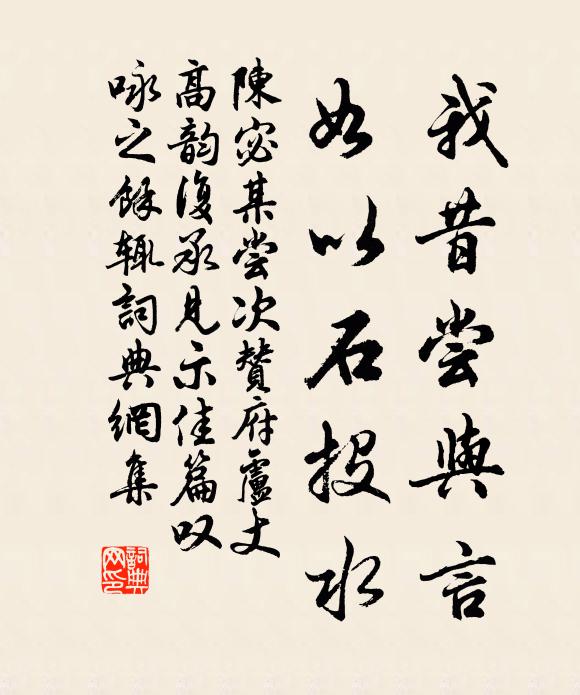 我昔嘗與言
如以石投水
陳宓某嘗次贊府盧丈
高韵復承見示佳篇叹
咏之餘輒詞典網集
詞典網印